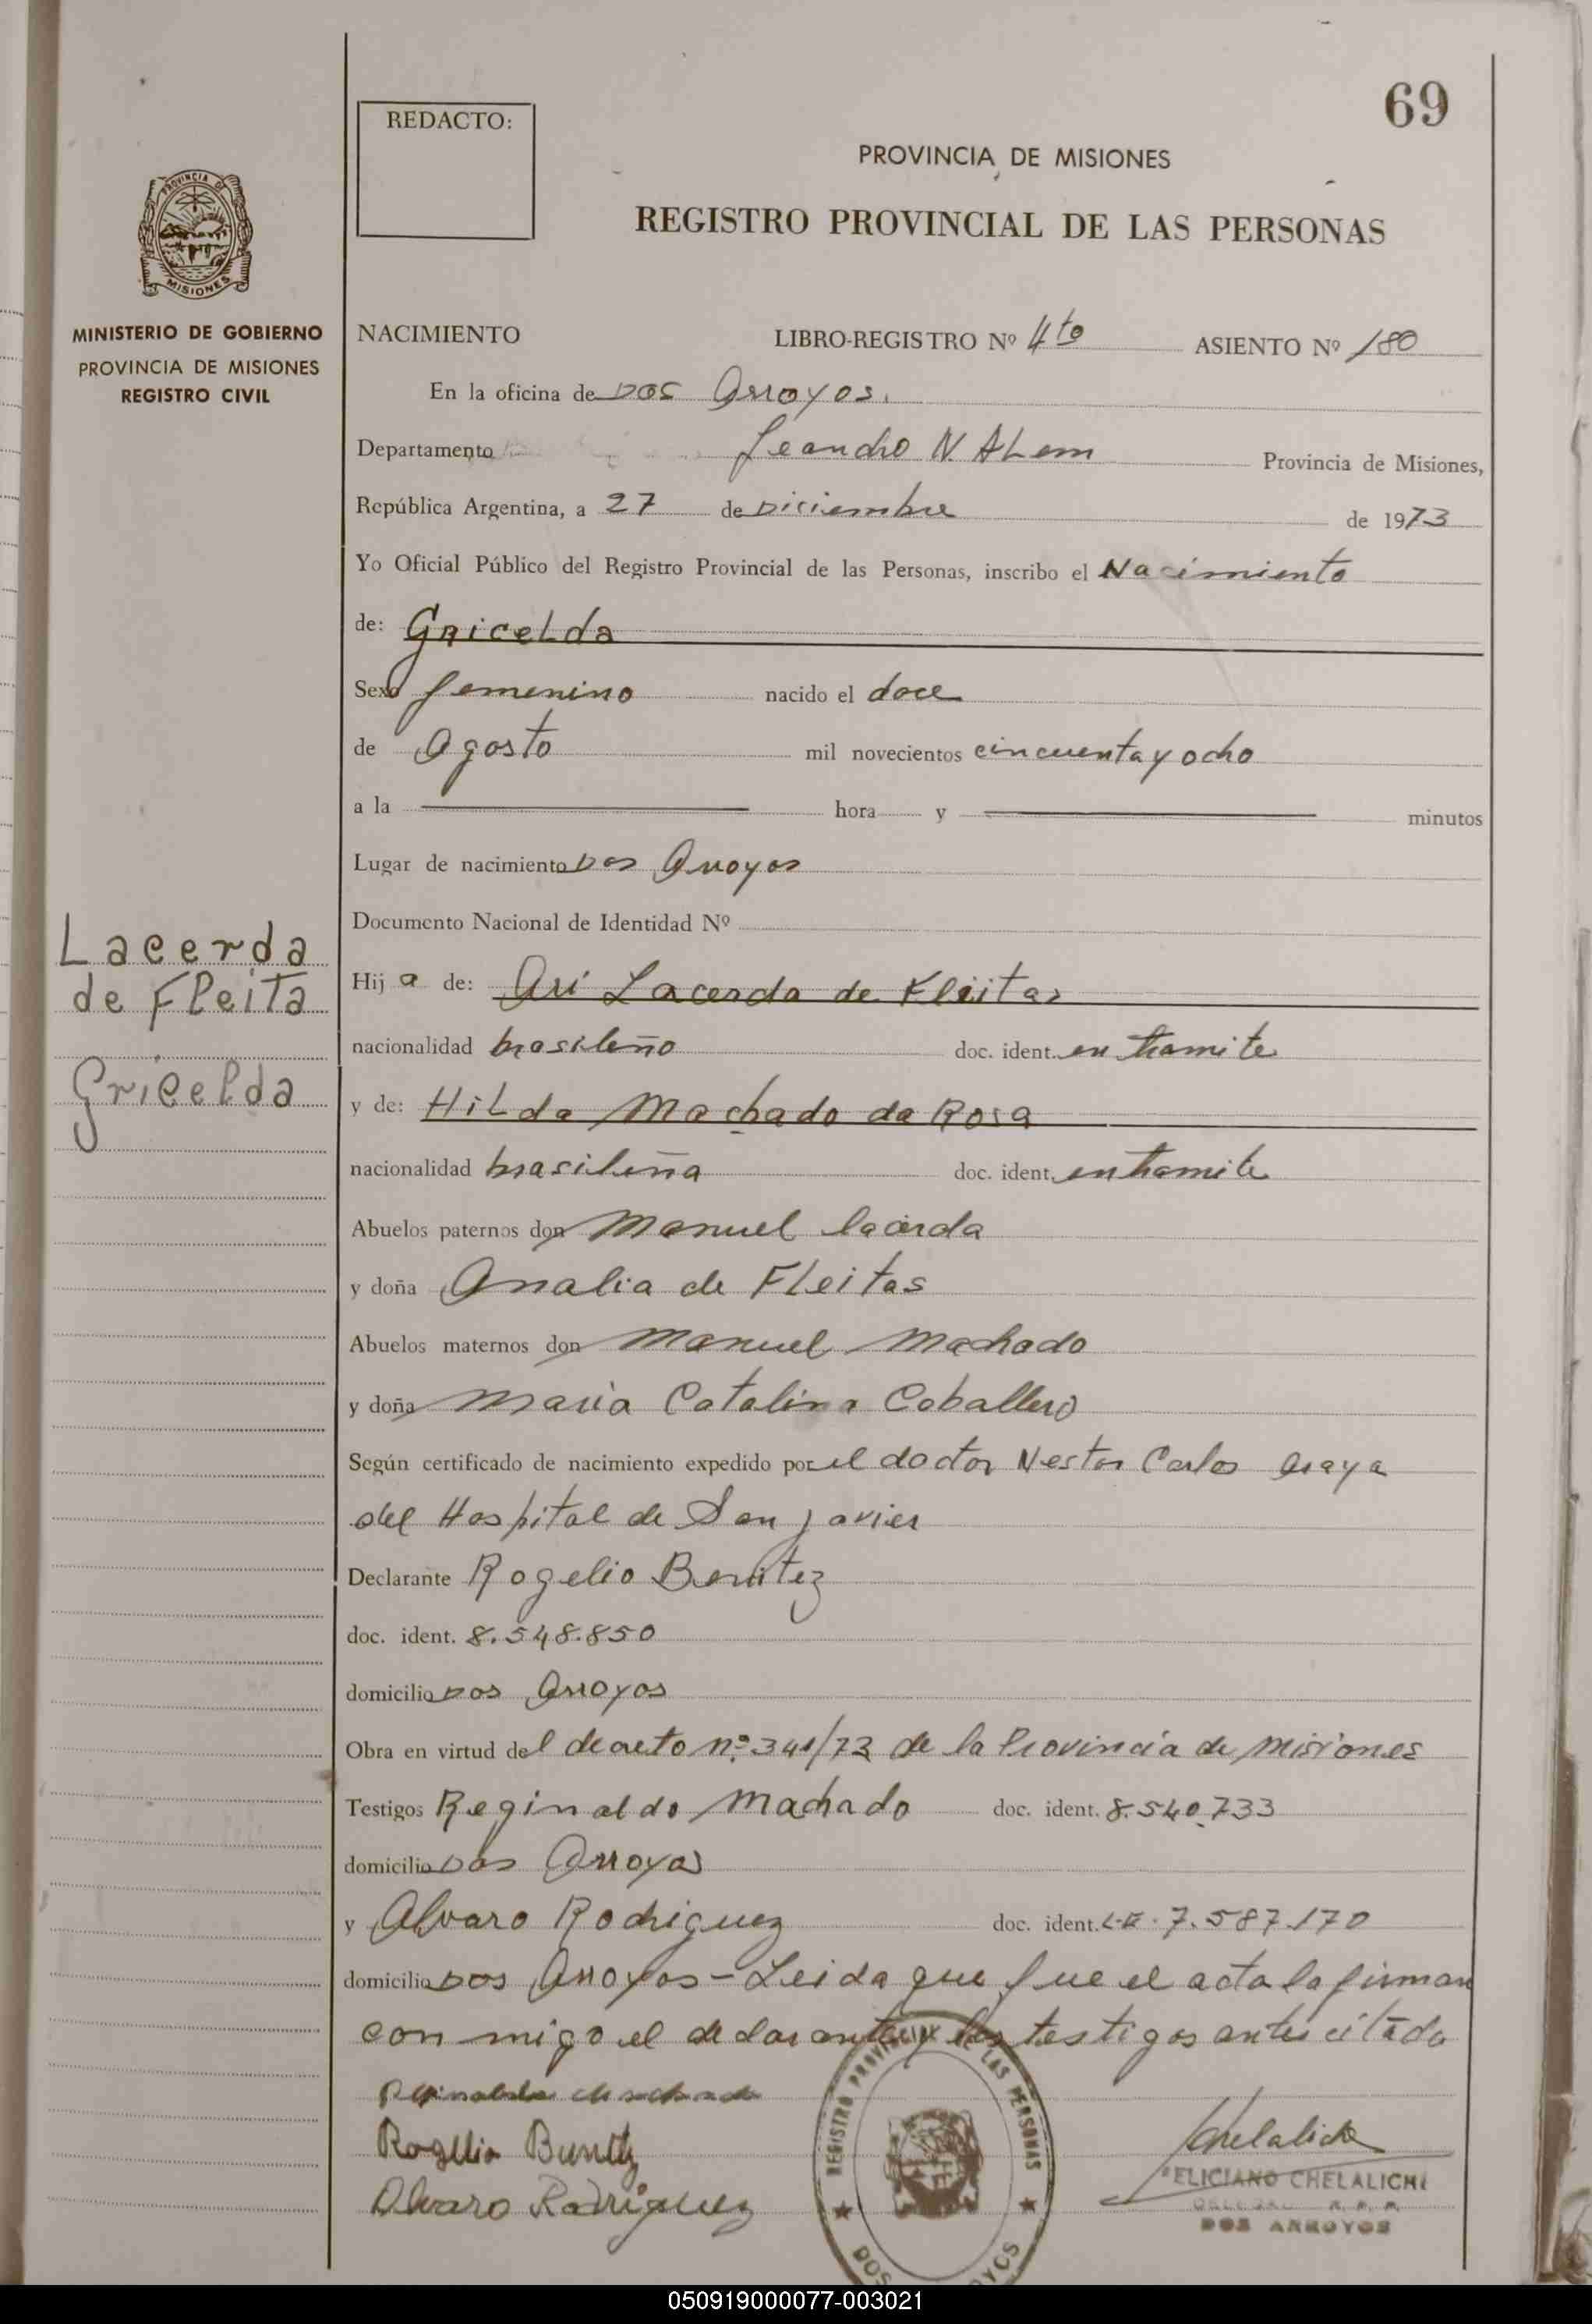 69
REDACTO:
PROVINCIA DE MISIONES
REGISTRO PROVINCIAL DE LAS PERSONAS
PROVINCIA DE
MISIONES
MINISTERIO DE GOBIERNO
PROVINCIA DE MISIONES
REGISTRO CIVIL
NACIMIENTO LIBRO-REGISTRO Nº 4to ASIENTO Nº 180
En la oficina de Dos Arroyos.
Departamento Leandro N. ALem Provincia de Misiones,
República Argentina, a 27 de Diciembre de 1973
Yo Oficial Público del Registro Provincial de las Personas, inscribo el Nacimiento
de: GriceLda
Sexo femenino nacido el doce
de Agosto mil novecientos cincuenta y ocho
a la hora y minutos
Lugar de nacimiento Dos Arroyos
Documento Nacional de Identidad Nº
Lacerda
de Fleita
Gricelda
Hij a de: Ari Lacerda de Fleitas
nacionalidad brasileño doc. ident. en tramite
y de: HiLda Machado da Rosa
nacionalidad brasileña doc. ident. en tramite
Abuelos paternos don Manuel lacerda
y doña Analia de FLeitas
Abuelos maternos don Manuel Machado
y doña Maria Catalina Caballero
Según certificado de nacimiento expedido por el doctor Nestor Carlos Araya
del Hospital de San Javier
Declarante Rogelio Benitez
doc. ident. 8.548.850
domicilio Dos Arroyos
Obra en virtud del decreto nº 341/73 de la Provincia de Misiones
Testigos Reginaldo Machado doc. ident. 8.540.733
domicilio Dos Arroyos
y Alvaro Rodriguez doc. ident. L.E. 7.587.170
domicilio Dos Arroyos - Leida que fue el acta la firman
con migo el declarante y los testigos antes citado
Reginaldo Machado
Rogelio Benitez
Alvaro Rodriguez
REGISTRO PROVINCIAL DE LAS PERSONAS
DOS ARROYOS
Chelalich
FELICIANO CHELALICHI
R. P. P.
DOS ARROYOS
050919000077-003021